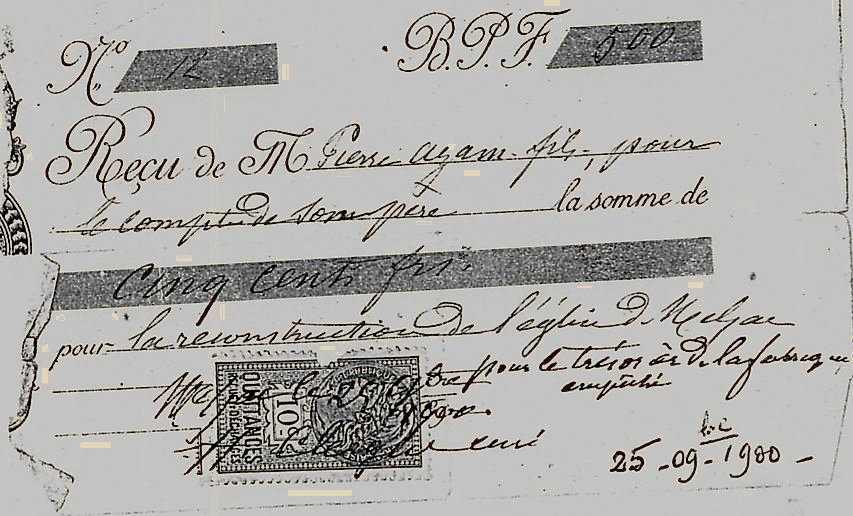 N° 12 B.P.F. 500
Reçu de M Pierre agam fils, pour
le compte de son père la somme de
cinq cents frs.
pour la reconstruction de l'église de Meljac
pour le trésorier de la fabrique
empêché
QUITTANCES
10
curé
25-09-1900